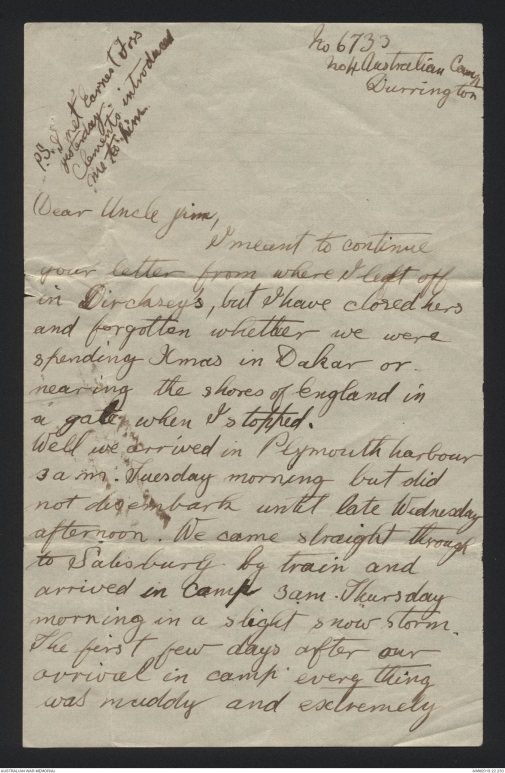 No 6733
No 4 Australian Camp
Durrington
P.S. I met Earnest Foss
yesterday.
Clements introduced
me to him.
Dear Uncle Jim,
I meant to continue
your letter from where I left off
in , but I have closed hers
and forgotten whether we were
spending Xmas in Dakar or
nearing the shores of England in
a gale, when I stopped.
Well we arrived in Plymouth harbour
3 a m. Tuesday morning but did
not disembark until late Wednesday
afternoon. We came straight through
to Salisbury by train and
arrived in camp 3am. Thursday
morning in a slight snow storm.
The first few days after our
arrival in camp every thing
was muddy and extremely
AUSTRALIAN WAR MEMORIAL